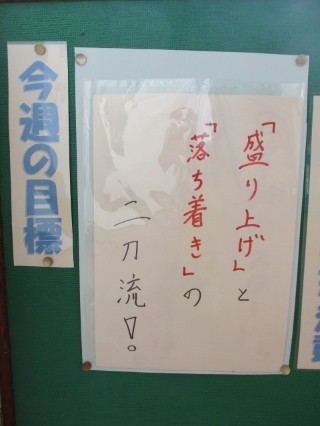 今週の目標
「盛り上げ」と
「落ち着き」の
二刀流!。